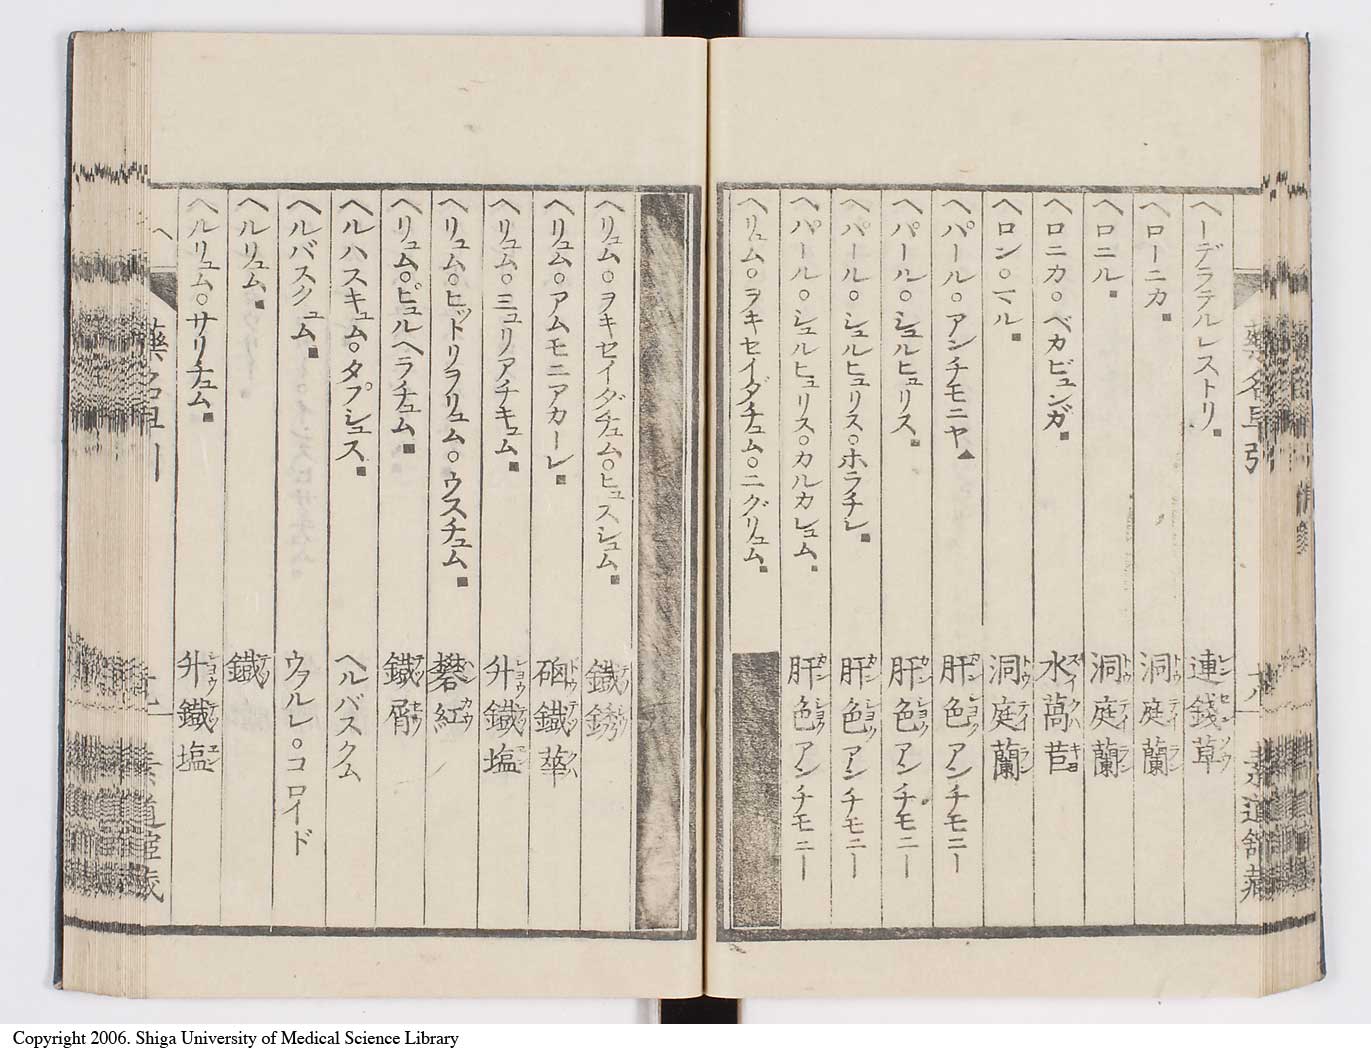 藥名早引
ヘーデラテルレストリ■ 連錢草
ヘローニカ■ 洞庭蘭
ヘロニル■ 洞庭蘭
ヘロニカ○ベカビュンガ■ 水萵苣
ヘロン○一ル■ 洞庭蘭
ヘパール○アンチモニヤ▲ 肝色アンチモニー
ヘパール○シュルヒュリス■ 肝色アンチモニー
ヘパール○シュルヒュリス○ホラチレ■ 肝色アンチモニー
ヘパール○シュルヒュリス○カルカレュム■ 肝色アンチモニー
ヘリュム○ヲキセイダチュム○ニグリュム■
ヘリュム○ヲキセイダチュム○ヒュスシュム■ 鐵銹
ヘリュム○アムモニアカーレ■ 硇鐵華
ヘリュム○ミュリアチキュム■ 升鐵塩
ヘリュム○ヒットリヲリュム○ウスチュム■ 礬紅
ヘリュム○ピュルヘラチュム■ 鐵屑
ヘルハスキュム○タプシュス■ ヘルバスクム
ヘルバスクュム■ ウヲルレ○コロイド
ヘルリュム■ 鐵
ヘルリュム○サリチュム■ 升鐵塩
ヘ
Copyright 2006. Shiga University of Medical Science Library